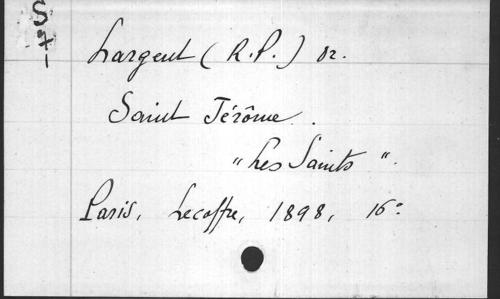 St
Largent (R.P.) or.
Saint Jérôme.
"Les Saints".
Paris, Lecoffre, 1898, 16°